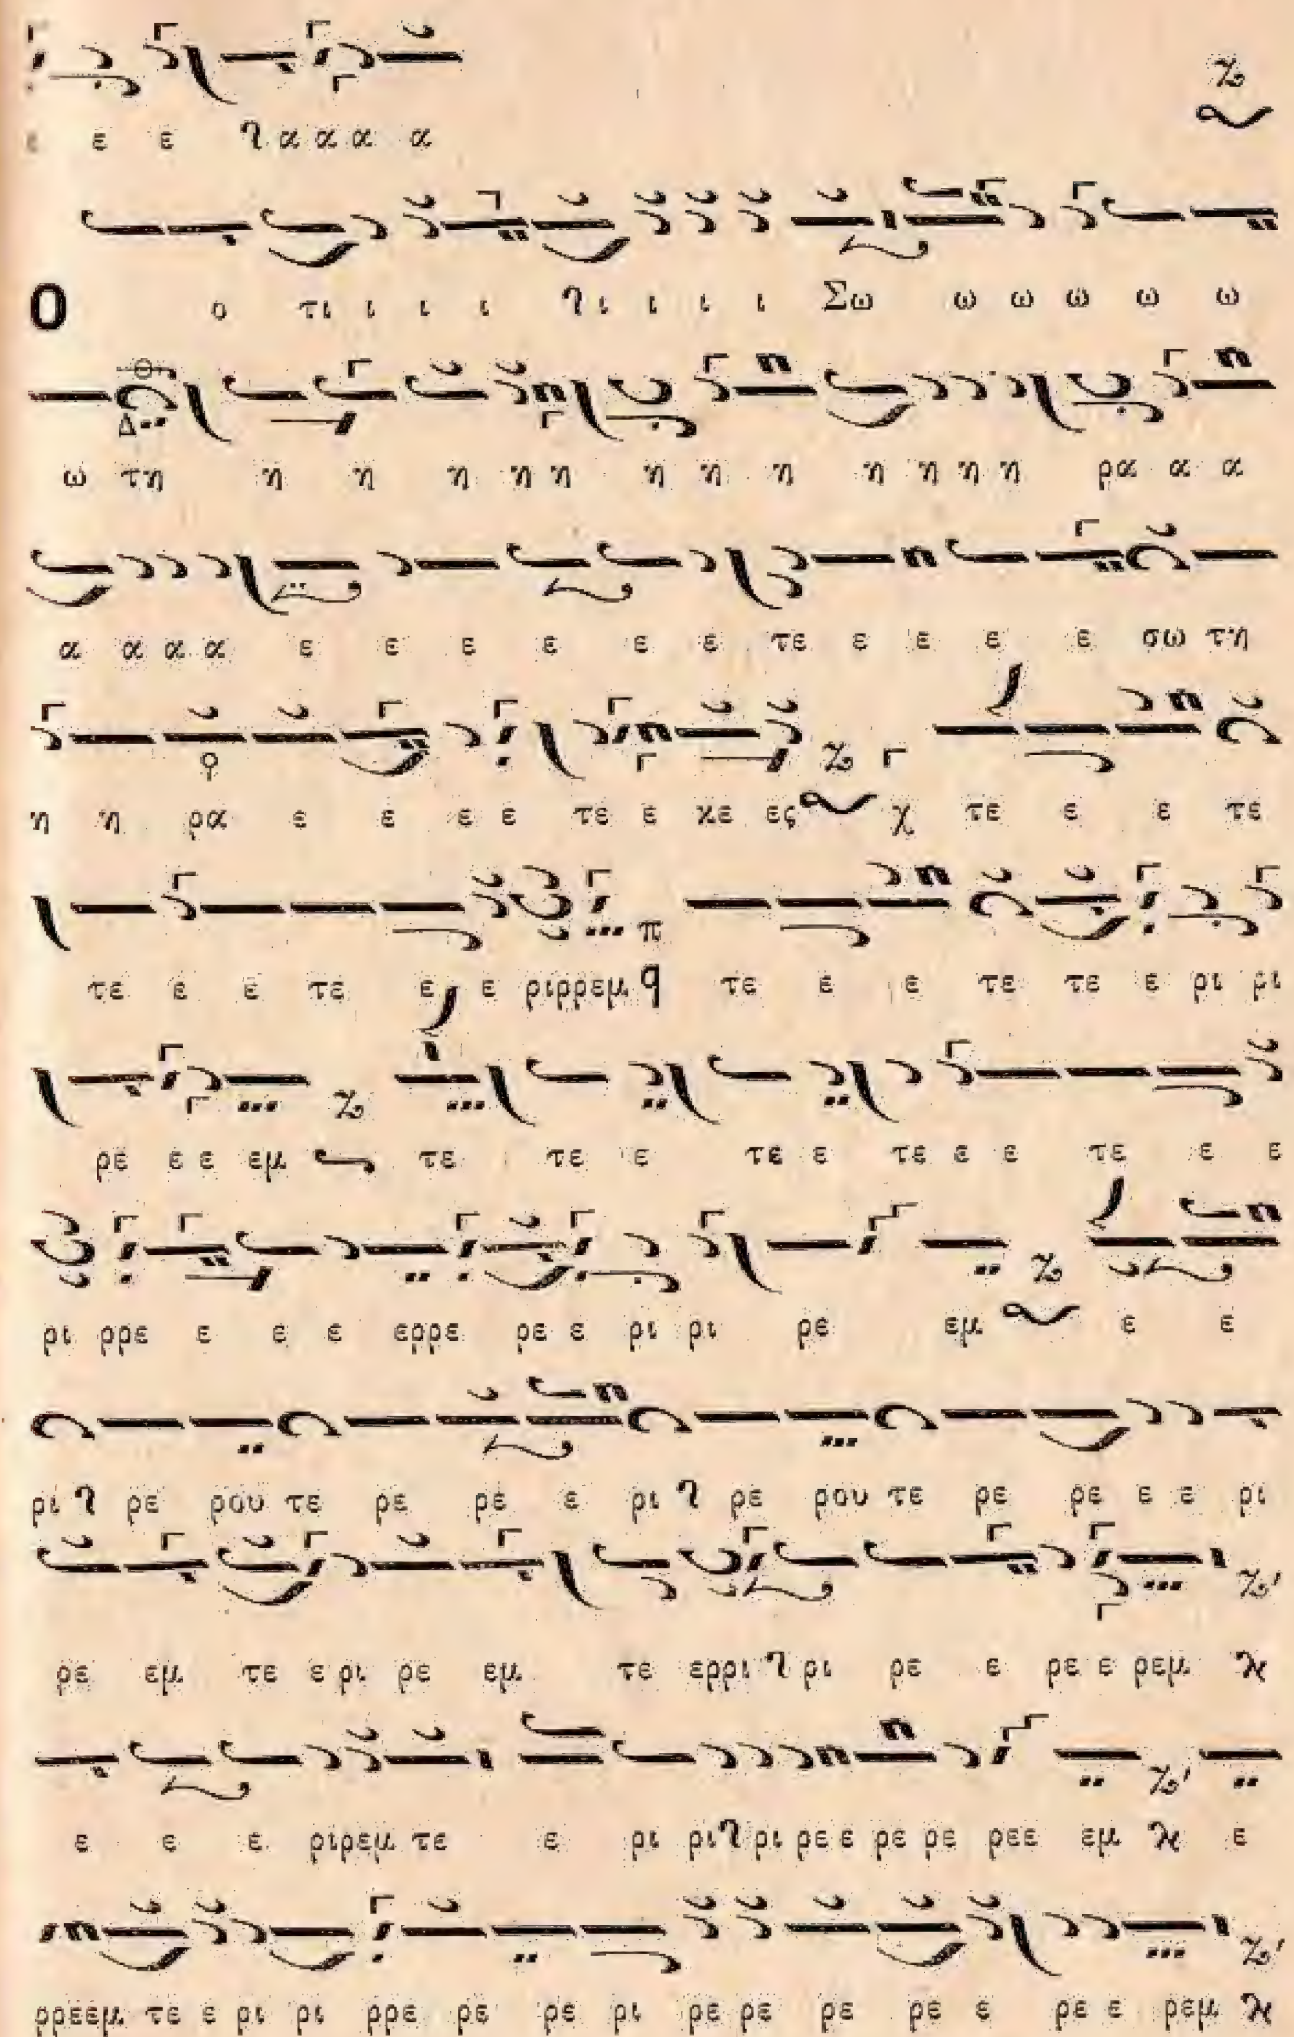 ε ε ε α α α α
Ο ο τι ι ι ι ι ι ι ι Σω ω ω ω ω ω
ω τη η η η η η η η η η η η η ρα α α
α α α α ε ε ε ε ε ε τε ε ε ε ε σω τη
η η ρα ε ε ε ε τε ε κε ες χ τε ε ε τε
τε ε ε τε ε ε ριρρεμ q τε ε ε τε τε ε ρι ρι
ρε ε ε εμ τε τε ε τε ε τε ε ε τε ε ε
ρι ρρε ε ε ε ερρε ρε ε ρι ρι ρε εμ ε ε
ρι ρε ρου τε ρε ρε ε ρι ρε ρου τε ρε ρε ε ε ρι
ρε εμ τε ε ρι ρε εμ τε ερρι ρι ρε ε ρε ε ρεμ
ε ε ε ριρεμ τε ε ρι ρι ρι ρε ε ρε ρε ρεε εμ ε
ρρεεμ τε ε ρι ρι ρρε ρε ρε ρι ρε ρε ρε ρε ε ρε ε ρεμ